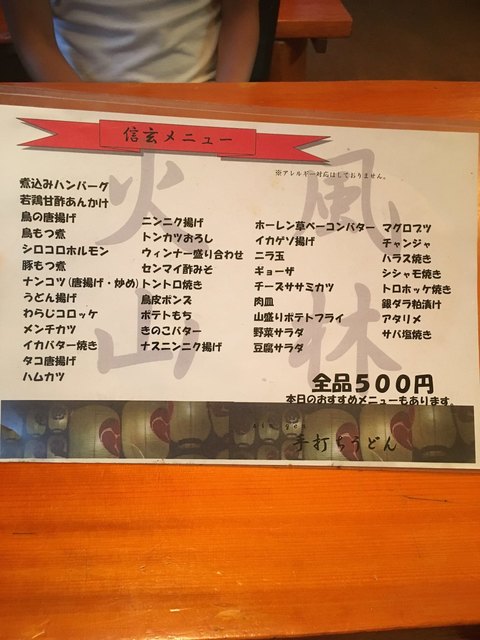 信玄メニュー
※アレルギー対応はしておりません。
風
林
火
山
煮込みハンバーグ
若鶏甘酢あんかけ
鳥の唐揚げ
鳥もつ煮
シロコロホルモン
豚もつ煮
ナンコツ(唐揚げ・炒め)
うどん揚げ
わらじコロッケ
メンチカツ
イカバター焼き
タコ唐揚げ
ハムカツ
ニンニク揚げ
トンカツおろし
ウィンナー盛り合わせ
センマイ酢みそ
トントロ焼き
鳥皮ポンズ
ポテトもち
きのこバター
ナスニンニク揚げ
ホーレン草ベーコンバター
イカゲソ揚げ
ニラ玉
ギョーザ
チーズササミカツ
肉皿
山盛りポテトフライ
野菜サラダ
豆腐サラダ
マグロブツ
チャンジャ
ハラス焼き
シシャモ焼き
トロホッケ焼き
銀ダラ粕漬け
アタリメ
サバ塩焼き
全品500円
本日のおすすめメニューもあります。
手打ちうどん